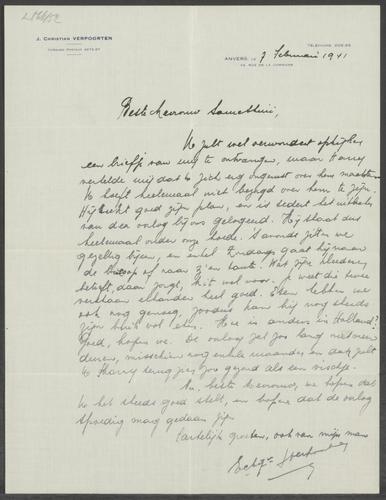 J. Christian Verpoorten
Anvers, le 7 Februari 1941
Beste Mevrouw Samethini,
U zult wel verwonderd opkijken
een briefje van mij te ontvangen, maar Harry
vertelde mij dat U zich erg ongerust over hem maakte
U hoeft heelemaal niet bezorgd over hem te zijn.
Hij ziet goed zijn plan, en is sedert het uitbreken
van den oorlog bij ons gelogeerd. Hij staat dus
heelemaal onder mijn hoede. 's avonds zitten we
gezellig bijeen, en enkel Zondags gaat hij naar
de bioscoop of naar z'en tante. Wat zijn kleederen
betreft, daar zorgt, hij wel voor. U weet die twee
verstaan elkander heel goed. Eten hebben we
ook nog genoeg, zoodus kan hij nog steeds
zijn buik vol eten. Hoe is anders in Holland?
Goed, hopen we. De oorlog zal zoo lang niet meer
duren, misschien nog enkele maanden en dan zult
U Harry terug zien zoo gezond als een vischje.
Nu, beste Mevrouw, we hopen dat
U het steeds goed stelt, en hopen dat de oorlog
spoedig mag gedaan zijn
Hartelijke groeten, ook van mijn man